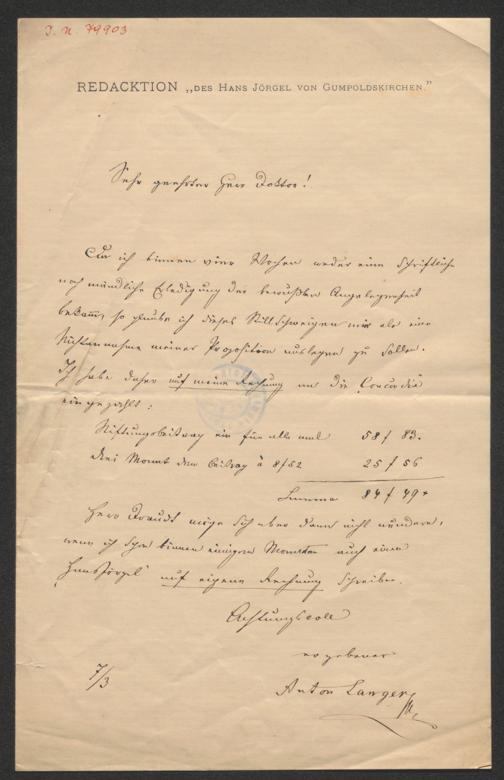 I. N 79903
REDACKTION „DES HANS JÖRGEL VON GUMPOLDSKIRCHEN."
Sehr geehrter Herr Doktor!
Da ich binnen vier Wochen weder eine schriftliche
noch mündliche Erledigung der bewußten Angelegenheit
bekam, so glaube ich dieses Stillschweigen mir als eine
Nichtannahme meiner Proposition auslegen zu sollen.
Ich habe daher auf meine Rechnung an die Concordia
eingezahlt:
Stiftungsbeitrag ein für alle mal 58 f 83.
drei Monat Beitrag à 8f52 25 f 56
Summa 84 f 49
Herr Draudt möge sich aber dann nicht wundern,
wenn ich schon binnen einigen Monaten auch einen
„Hansjörgel" auf eigene Rechnung schreibe.
Achtungsvoll
ergebener
7/3
Anton Langer